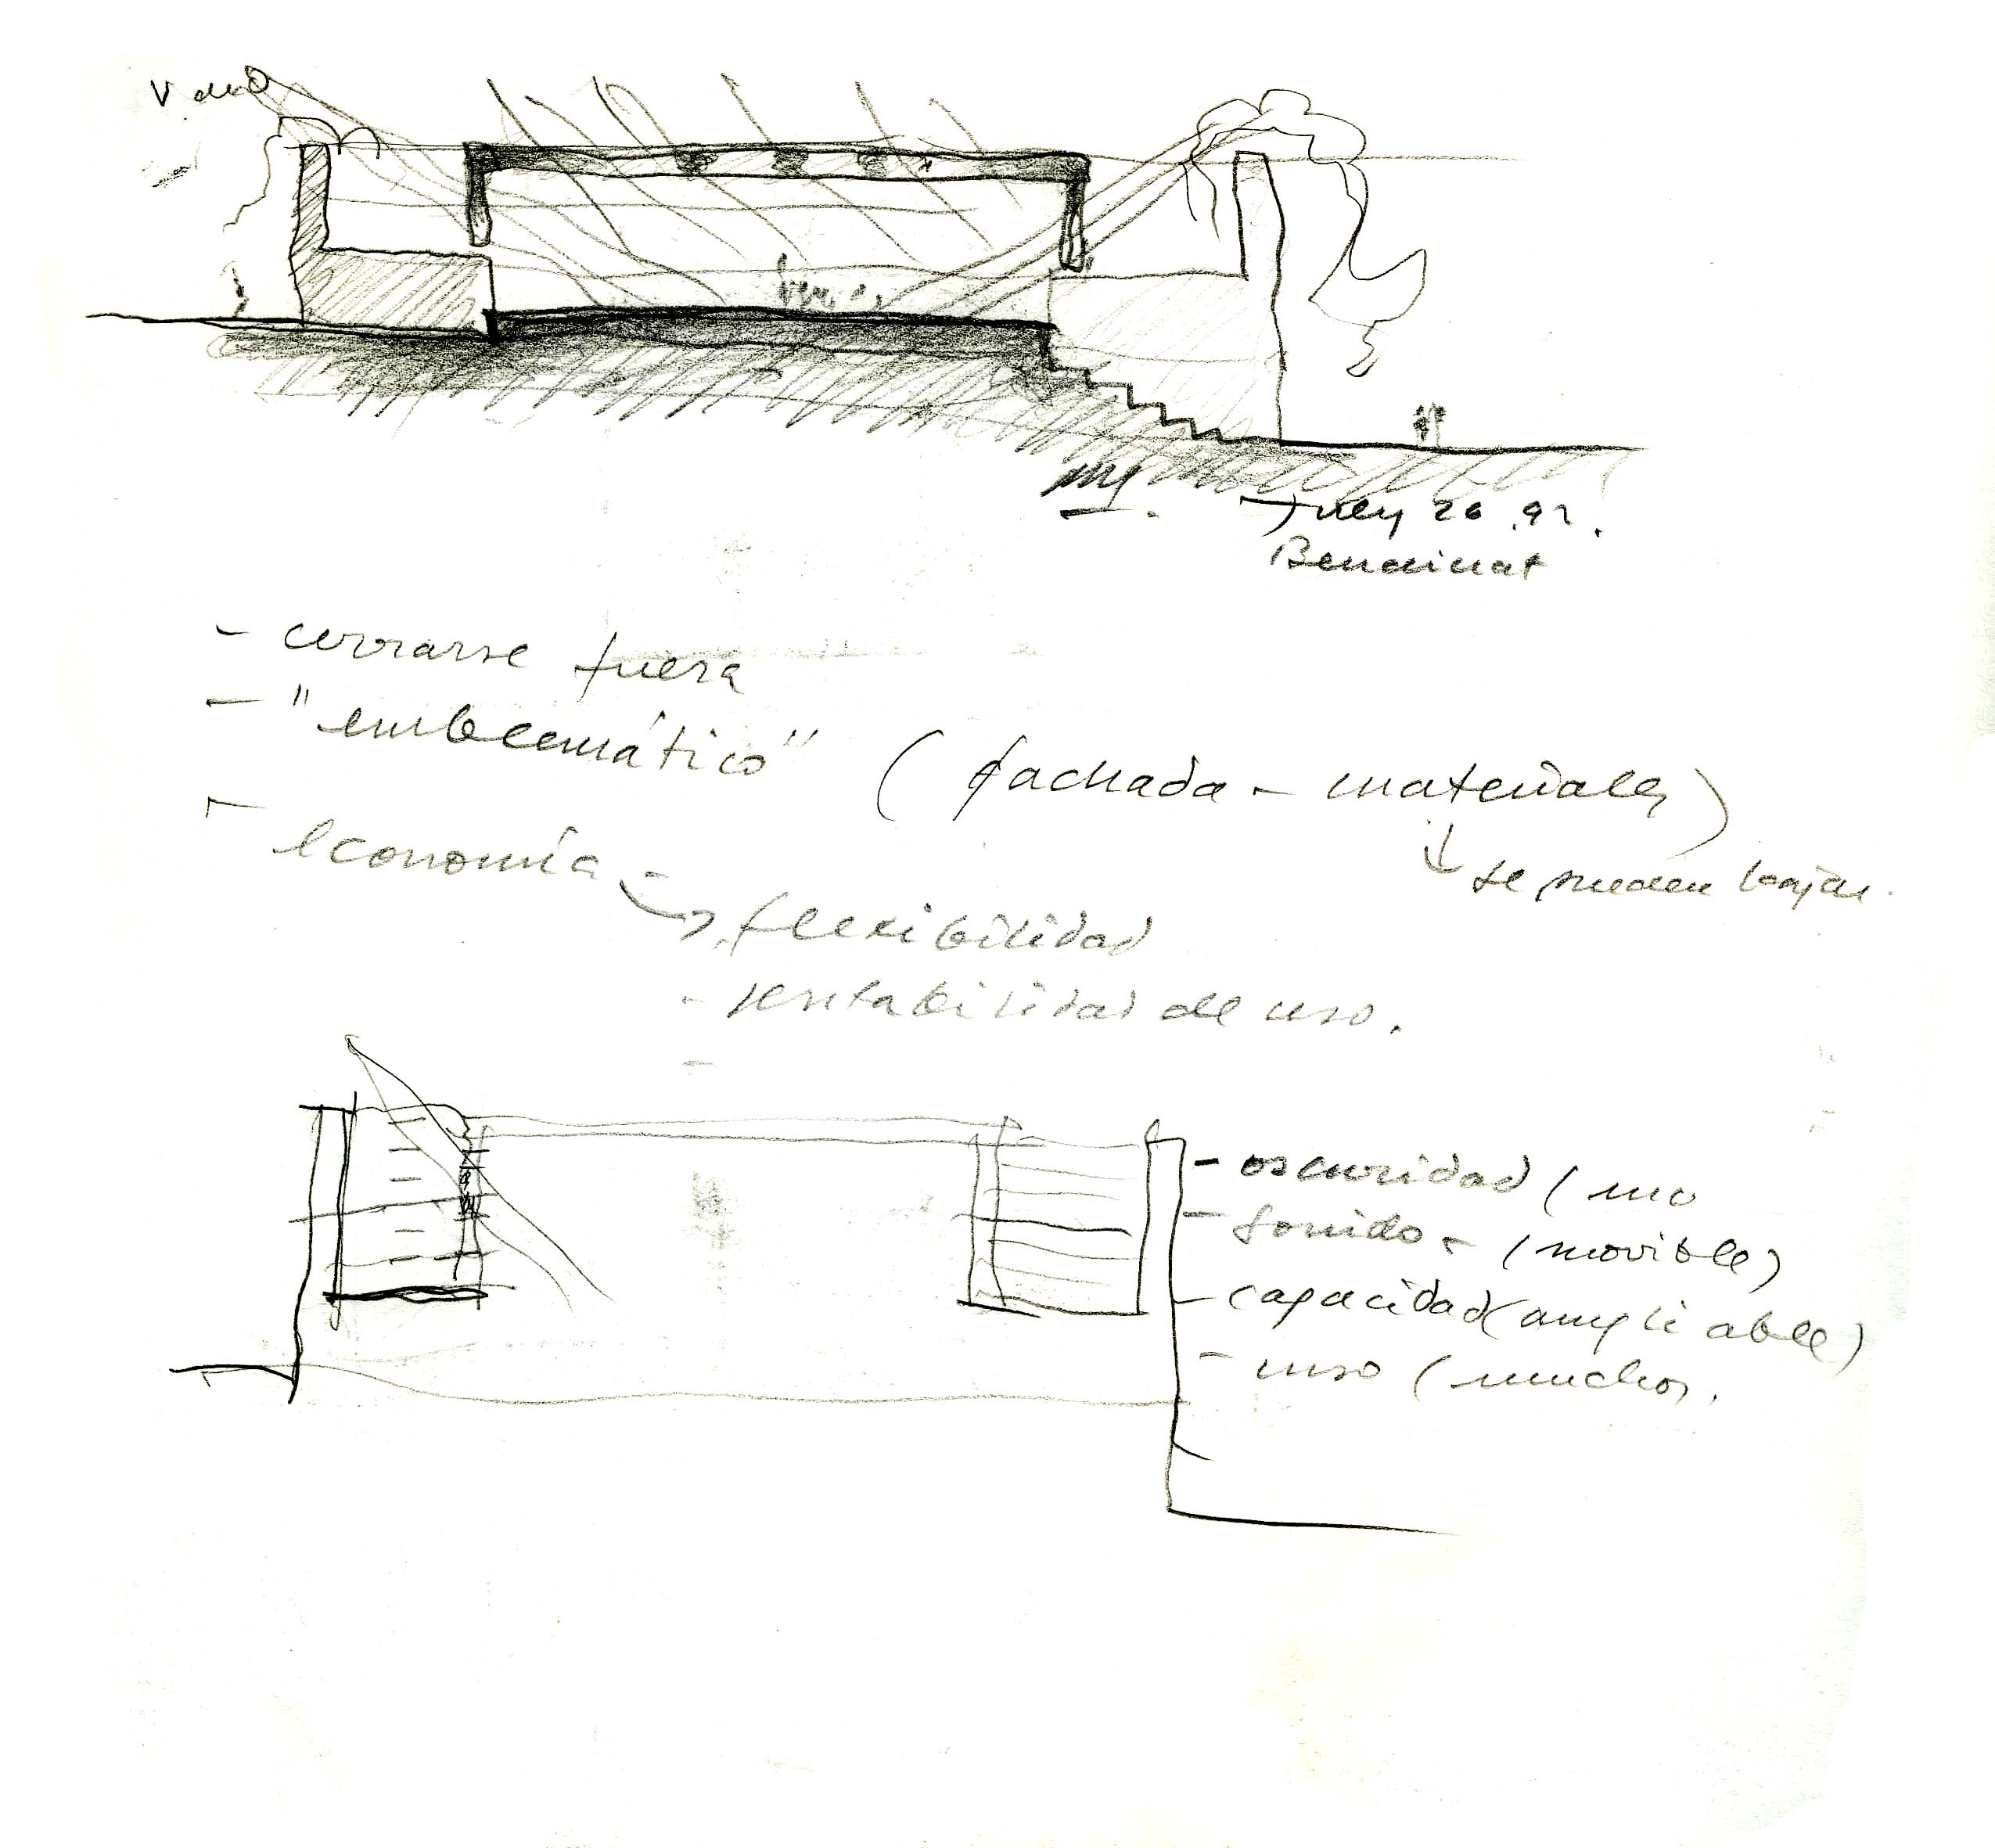 July 26.92.
Bendinat
- cerrarse fuera
- "emblemático" (fachada - materiales)
↓ se pueden bajar.
- economía -
→ flexibilidad
- rentabilidad de uso.
-
- oscuridad (no
- sonido - (movible)
- capacidad (ampliable)
- uso (muchos.